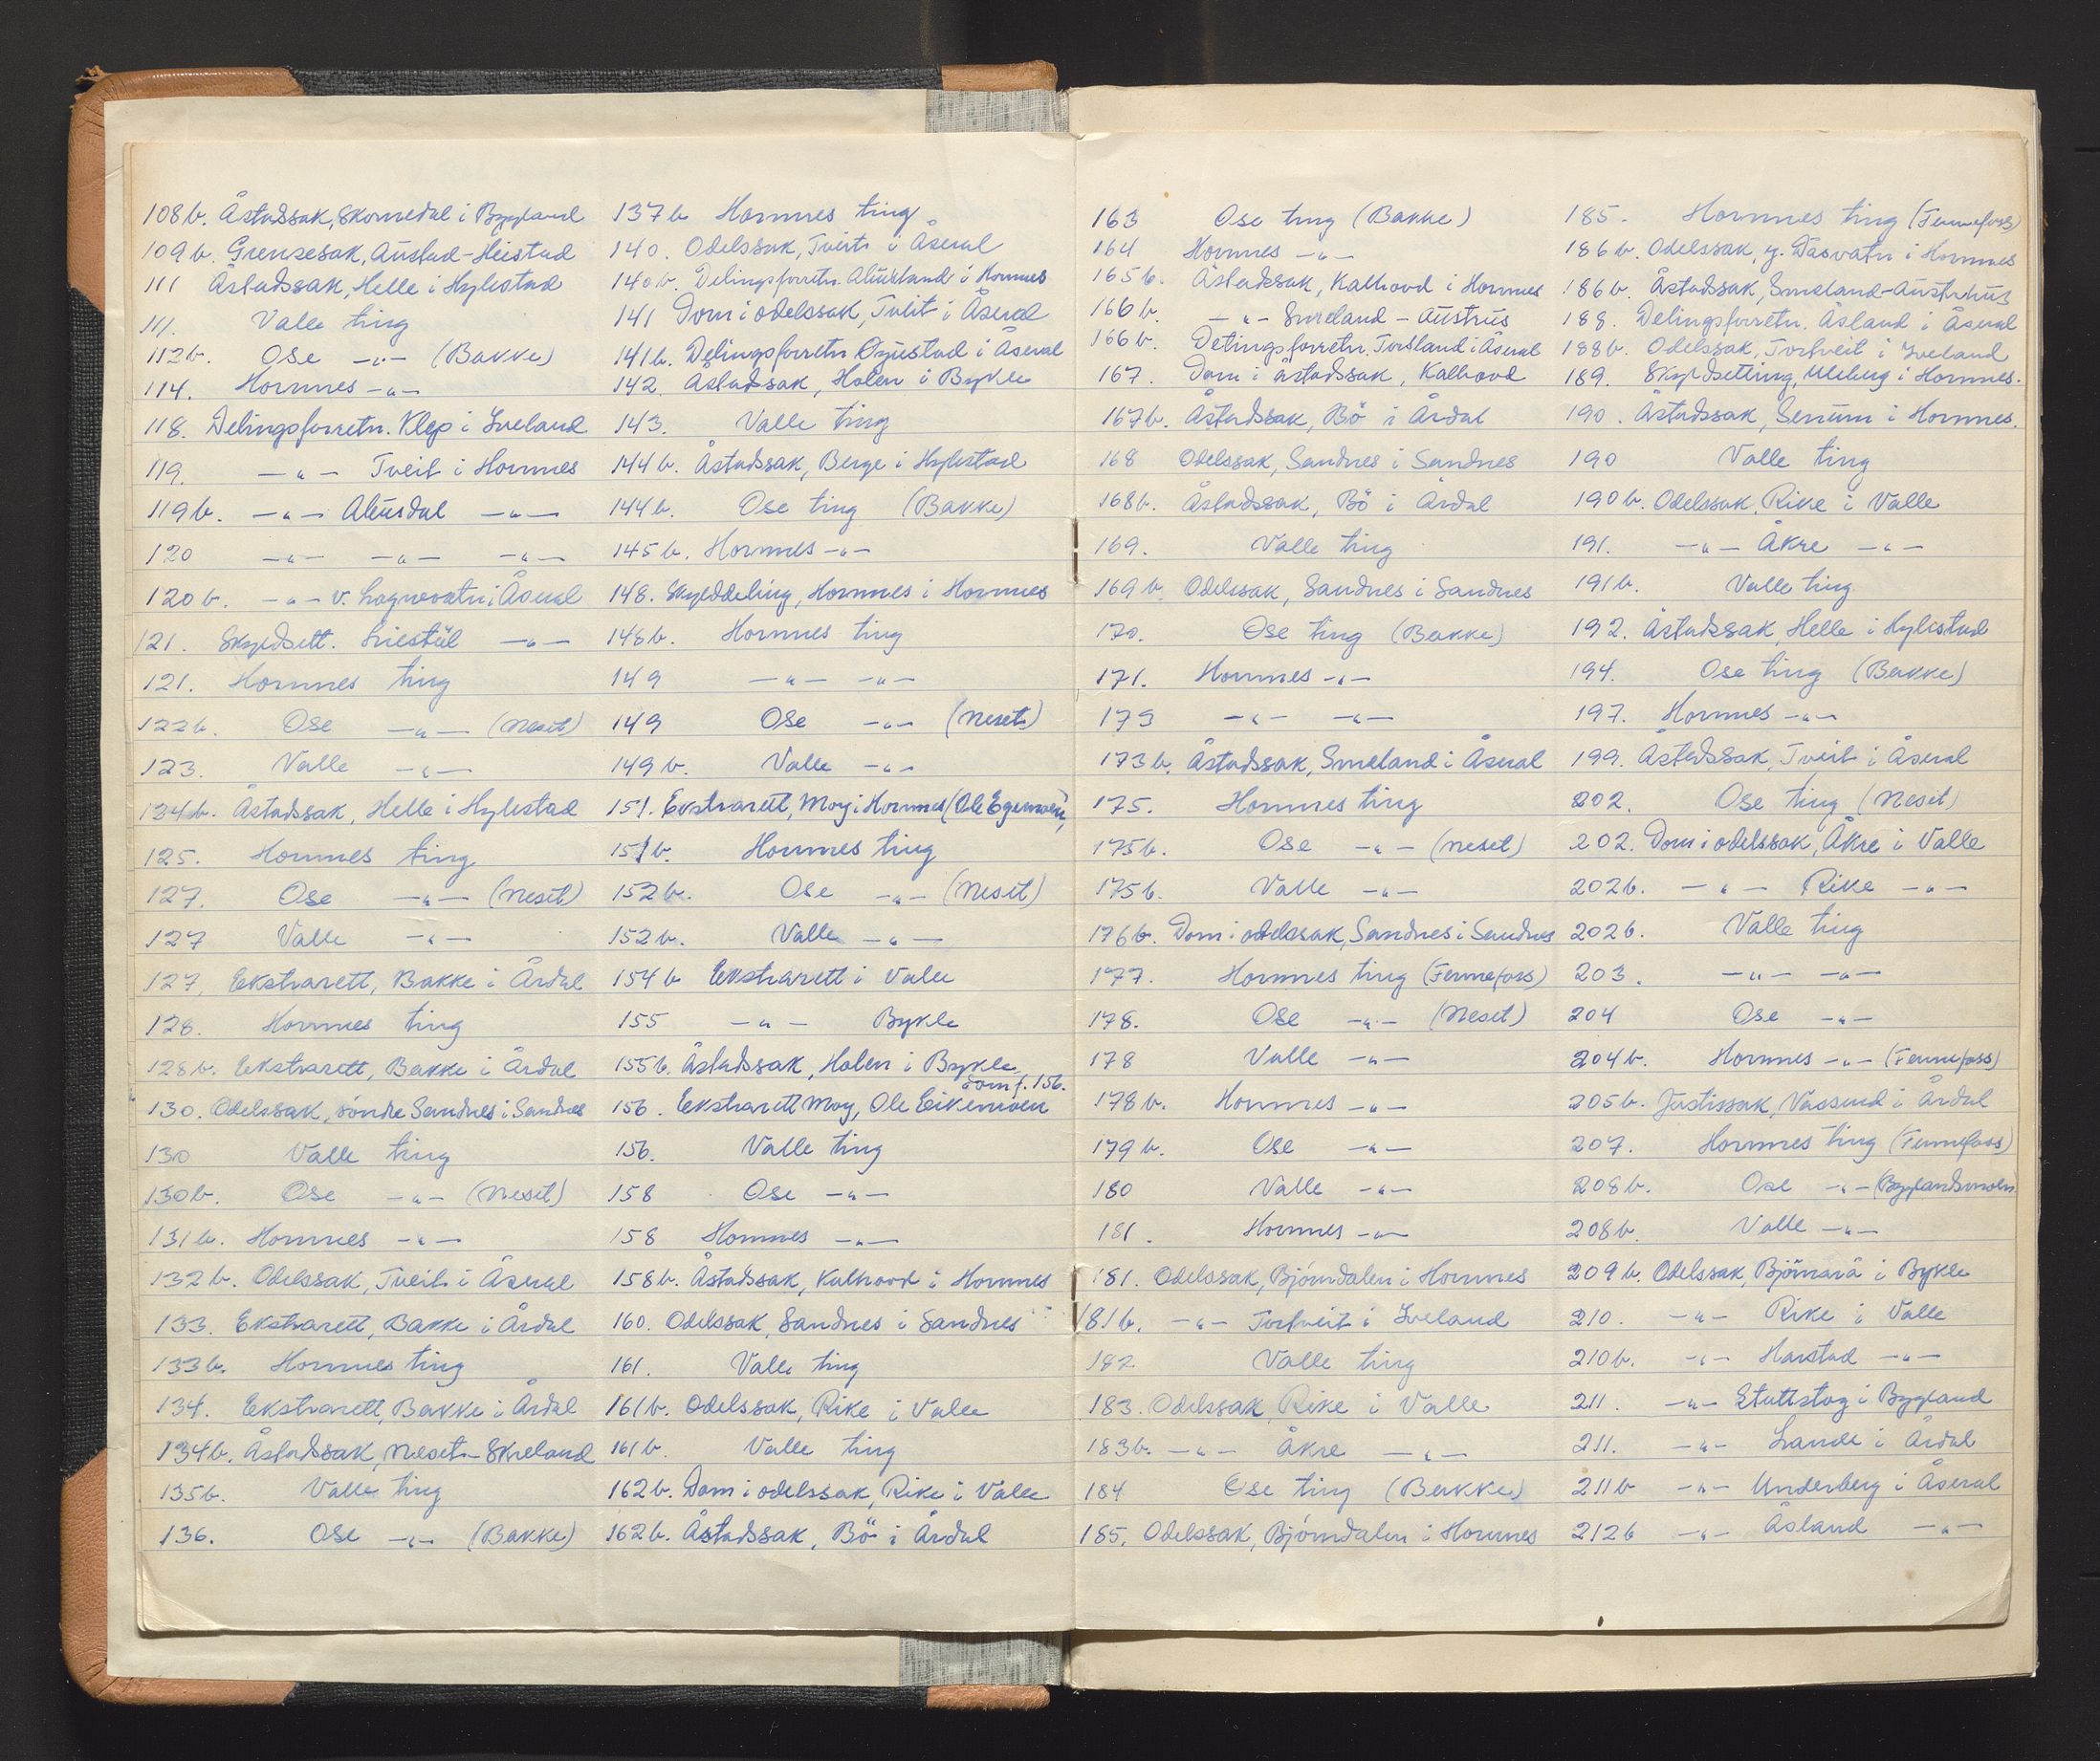 108b. Åstadssak, Skomedal i Bygland
109b. Grensesak, Austad-Heistad
111 Åstadssak, Helle i Hylestad
111. Valle ting
112b. Ose -"- (Bakke)
114. Hornnes -"-
118. Delingsforretn. Klep i Iveland
119. -"- Tveit i Hornnes
119b. -"- Abusdal -"-
120 -"- -"- -"-
120b. -"- v. Lognevatn i Åseral
121. Skyldsett. -"-
121. Hornnes ting
122b. Ose -"- (Neset)
123. Valle -"-
124b. Åstadssak, Helle i Hylestad
125. Hornnes ting
127. Ose -"- (Neset)
127 Valle -"-
127. Ekstrarett, Bakke i Årdal
128. Hornnes ting
128b. Ekstrarett, Bakke i Årdal
130. Odelssak, söndre Sandnes i Sandnes
130 Valle ting
130b. Ose -"- (Neset)
131b. Hornnes -"-
132b. Odelssak, Tveit i Åseral
133. Ekstrarett, Bakke i Årdal
133b. Hornnes ting
134. Ekstrarett, Bakke i Årdal
134b. Åstadssak, Neset-Skreland
135b. Valle ting
136. Ose -"- (Bakke)
137b Hornnes ting
140. Odelssak, Tveit i Åseral
140b. Delingsforretn. i Hornnes
141 Dom i odelssak, Tveit i Åseral
141b. Delingsforretn. i Åseral
142. Åstadssak, Holen i Bykle
143. Valle ting
144b. Åstadssak, Berge i Hylestad
144b. Ose ting (Bakke)
145b. Hornnes -"-
148. Skylddeling, Hornnes i Hornnes
148b. Hornnes ting
149 -"- -"-
149 Ose -"- (Neset)
149b. Valle -"-
151. Ekstrarett, Moy i Hornnes (Ole Egemoen)
151b. Hornnes ting
152b. Ose -"- (Neset)
152b. Valle -"-
154b Ekstrarett i Valle
155 -"- Bykle
155b. Åstadssak, Holen i Bykle
som f. 156.
156. Ekstrarett Moy, Ole Eikemoen
156. Valle ting
158 Ose -"-
158 Hornnes -"-
158b. Åstadssak, Kalhovd i Hornnes
160. Odelssak, Sandnes i Sandnes
161. Valle ting
161b. Odelssak, Rike i Valle
161b. Valle ting
162b. Dom i odelssak, Rike i Valle
162b. Åstadssak, Bö i Årdal
163 Ose ting (Bakke)
164 Hornnes -"-
165b. Åstadssak, Kalhovd i Hornnes
166b. -"- Smeland - Austrus
166b. Delingsforretn. Torsland i Åseral
167. Dom i åstadssak, Kalhovd
167b. Åstadssak, Bö i Årdal
168 Odelssak, Sandnes i Sandnes
168b. Åstadssak, Bö i Årdal
169. Valle ting
169b Odelssak, Sandnes i Sandnes
170. Ose ting (Bakke)
171. Hornnes -"-
173 -"- -"-
173b. Åstadssak, Smeland i Åseral
175. Hornnes ting
175b. Ose -"- (Neset)
175b. Valle -"-
176b. Dom i odelssak, Sandnes i Sandnes
177. Hornnes ting (Fennefoss)
178. Ose -"- (Neset)
178 Valle -"-
178b. Hornnes -"-
179b. Ose -"-
180 Valle -"-
181. Hornnes -"-
181. Odelssak, Bjórndalen i Hornnes
181b. -"- Tortveit i Iveland
182 Valle ting
183. Odelssak, Rike i Valle
183b. -"- Åkre -"-
184 Ose ting (Bakke)
185. Odelssak, Bjórndalen i Hornnes
185. Hornnes ting (Fennefoss)
186b. Odelssak, y. Dåsvatn i Hornnes
186b. Åstadssak, Smeland-Austrhus
188. Delingsforretn. Åsland i Åseral
188b. Odelssak, Tortveit i Iveland
189. Skyldsetting, Uleberg i Hornnes.
190. Åstadssak, Senum i Hornnes.
190 Valle ting
190b. Odelssak, Rike i Valle
191. -"- Åkre -"-
191b. Valle ting
192. Åstadssak, Helle i Hylestad
194. Ose ting (Bakke)
197. Hornnes -"-
199. Åstadssak, Tveit i Åseral
202. Ose ting (Neset)
202. Dom i odelssak, Åkre i Valle
202b. -"- Rike -"-
202b. Valle ting
203. -"- -"-
204 Ose -"-
204b. Hornnes -"- (Fennefoss)
205b. Justissak, Vassend i Årdal
207. Hornnes ting (Fennefoss)
208b. Ose -"- (Byglandsmoen)
208b. Valle -"-
209b. Odelssak, Björnarå i Bykle
210. -"- Rike i Valle
210b. -"- Harstad -"-
211. -"- Stuttstog i Bygland
211. -"- Lande i Årdal
211b -"- Underberg i Åseral
212b -"- Åsland -"-